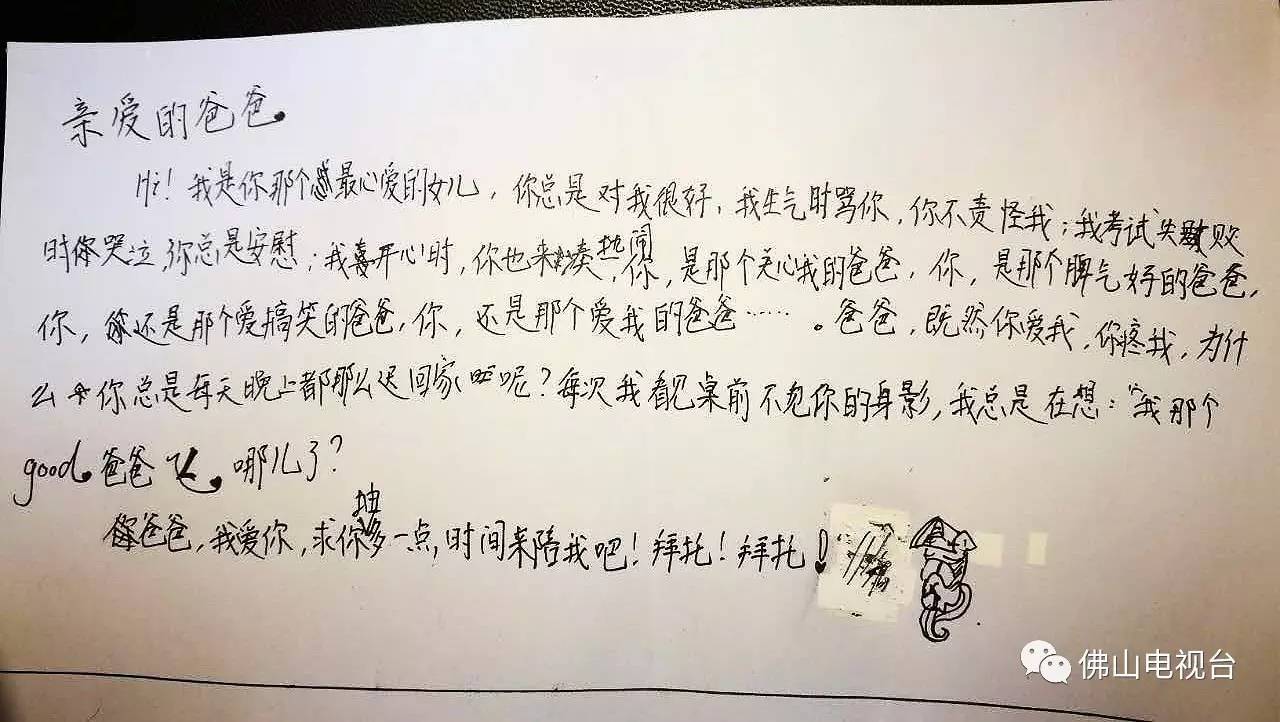 亲爱的爸爸
Hi！我是你那个最心爱的女儿，你总是对我很好，我生气时骂你，你不责怪我；我考试失败
时哭泣，你总是安慰；我开心时，你也来凑热闹，你，是那个关心我的爸爸，你，是那个脾气好的爸爸，
你，还是那个爱搞笑的爸爸，你，还是那个爱我的爸爸……。爸爸，既然你爱我，你疼我，为什
么你总是每天晚上都那么迟回家呢？每次我看见桌前不见你的身影，我总是在想：“我那个
good爸爸飞哪儿了？
爸爸，我爱你，求你抽多一点，时间来陪我吧！拜托！拜托！
佛山电视台